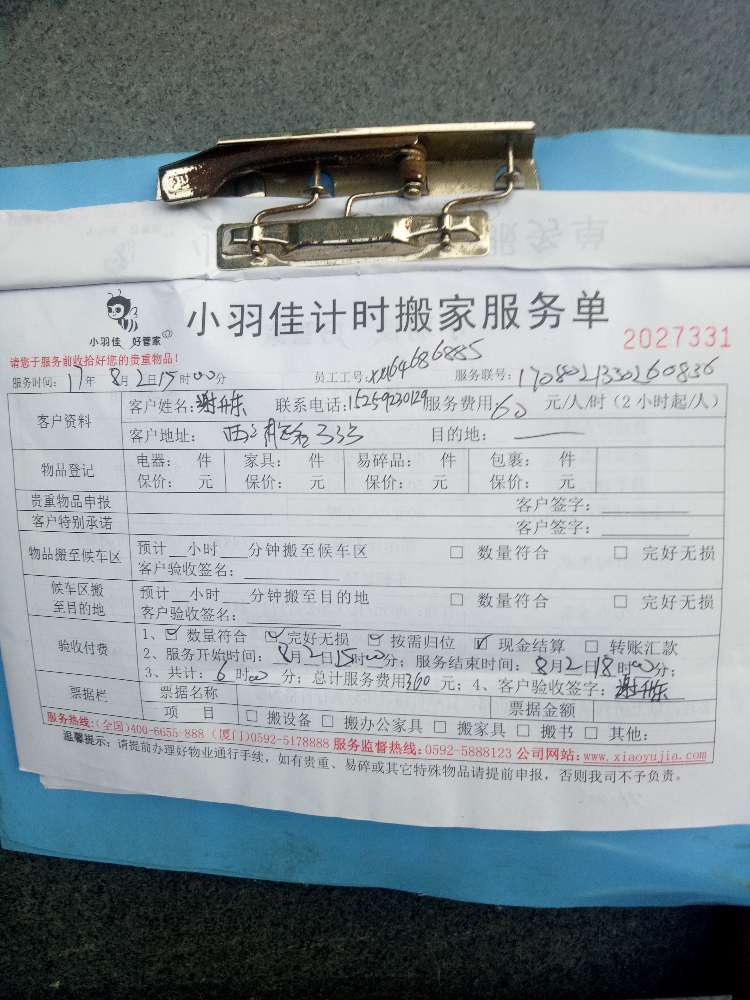 小羽佳 好管家
小羽佳计时搬家服务单
2027331
请您于服务前收拾好您的贵重物品!
服务时间: 17年 8月2日15时00分 员工工号: XM64686885 服务联号: 1708021330260836
客户资料
客户姓名: 谢 联系电话: 15259230129 服务费用: 60 元/人/时 (2小时起/人)
客户地址: 333 目的地: —
物品登记
电器: 件 家具: 件 易碎品: 件 包裹: 件
保价: 元 保价: 元 保价: 元 保价: 元
贵重物品申报 客户签字:
客户特别承诺 客户签字:
物品搬至候车区
预计__小时___分钟搬至候车区 □ 数量符合 □ 完好无损
客户验收签名:
候车区搬至目的地
预计__小时___分钟搬至目的地 □ 数量符合 □ 完好无损
客户验收签名:
验收付费
1、☑ 数量符合 ☑ 完好无损 ☑ 按需归位 ☑ 现金结算 □ 转账汇款
2、服务开始时间: 8月2日15时00分; 服务结束时间: 8月2日18时00分;
3、共计: 6 时00 分; 总计服务费用360 元; 4、客户验收签字: 谢
票据栏
票据名称 票据金额
项 目 □ 搬设备 □ 搬办公家具 □ 搬家具 □ 搬书 □ 其他:
服务热线:(全国)400-6655-888 (厦门)0592-5178888 服务监督热线:0592-5888123 公司网站:www.xiaoyujia.com
温馨提示: 请提前办理好物业通行手续, 如有贵重、易碎或其它特殊物品请提前申报, 否则我司不予负责。